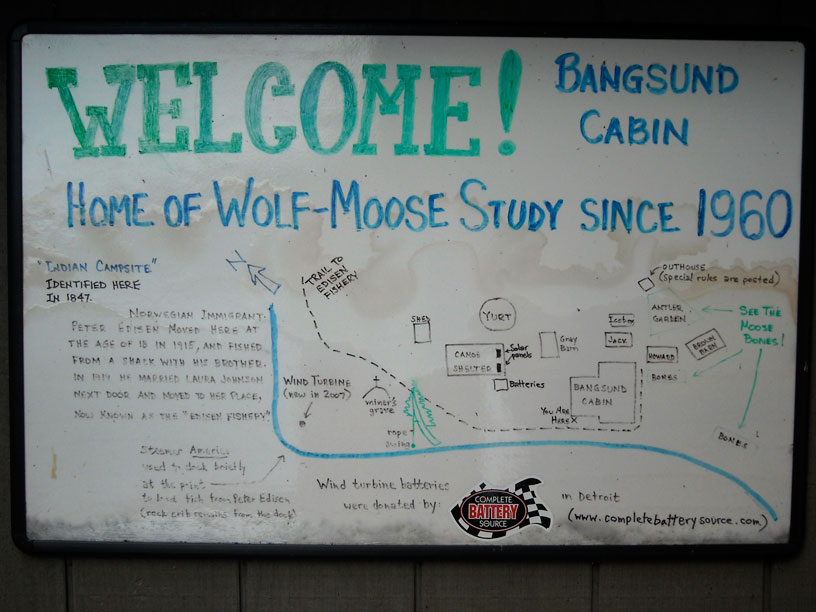 WELCOME!
BANGSUND
CABIN
HOME OF WOLF-MOOSE STUDY SINCE 1960
"INDIAN CAMPSITE"
IDENTIFIED HERE
IN 1847.
NORWEGIAN IMMIGRANT
PETER EDISEN MOVED HERE AT
THE AGE OF 18 IN 1915, AND FISHED
FROM A SHACK WITH HIS BROTHER.
IN 1919 HE MARRIED LAURA JOHNSON
NEXT DOOR AND MOVED TO HER PLACE,
NOW KNOWN AS THE "EDISEN FISHERY"
Steamer America
used to dock briefly
at this point
to load fish from Peter Edisen
(rock crib remains from the dock)
N
TRAIL TO
EDISEN
FISHERY
WIND TURBINE
(new in 2007)
miner's
grave
rope
swing
SHED
YURT
CANOE
SHELTER
Solar
panels
Batteries
Gray
Barn
Icebox
JACK
BANGSUND
CABIN
YOU ARE
HERE X
OUTHOUSE
(special rules are posted)
ANTLER
GARDEN
SEE THE
MOOSE
BONES!
HOWARD
BROWN
BARN
BONES
BONES
Wind turbine batteries
were donated by:
COMPLETE
BATTERY
SOURCE
in Detroit
(www.completebatterysource.com)